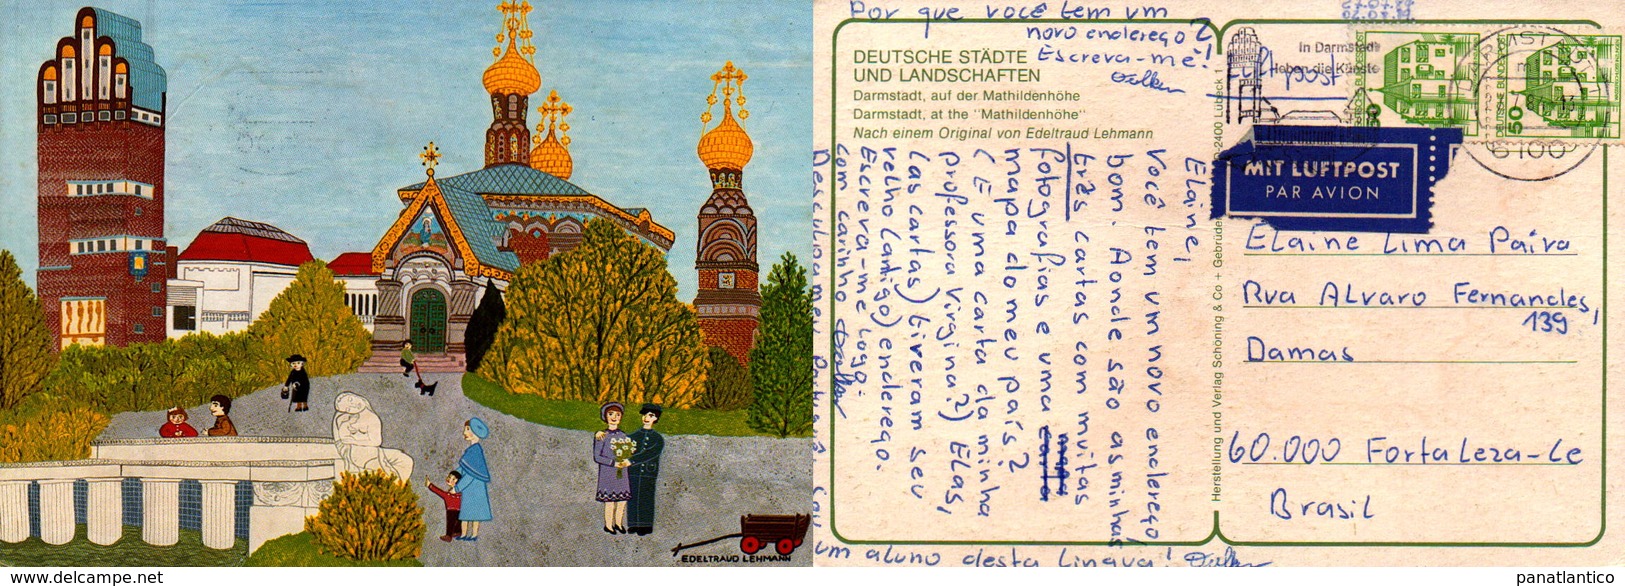 EDELTRAUD LEHMANN
Por que você tem um
novo enderego?
Escreva-me!
Falken
Luftpost
DEUTSCHE STÄDTE
UND LANDSCHAFTEN
Darmstadt, auf der Mathildenhöhe
Darmstadt, at the "Mathildenhöhe"
Nach einem Original von Edeltraud Lehmann
In Darmstadt
leben die Künste
50
DEUTSCHE BUNDESPOST
6100
MIT LUFTPOST
PAR AVION
Elaine,
Você tem um novo enderego
bom. Aonde são as minhas
três cartas com muitas
fotografias e uma
mapa do meu país?
(E uma carta da minha
professora Virgina?) Elas,
(as cartas) tiveram seu
velho (antigo) enderego.
Escreva-me logo.
com carinho Falken
Desculpa meu Portuguê, sou
um aluno desta lingua! Falken
Herstellung und Verlag Schöning & Co + Gebrüder
D-2400 Lübeck 1
Elaine Lima Paiva
Rua Alvaro Fernandes,
139
Damas
60.000 Fortaleza-Ce
Brasil
https://www.delcampe.net
panatlantico